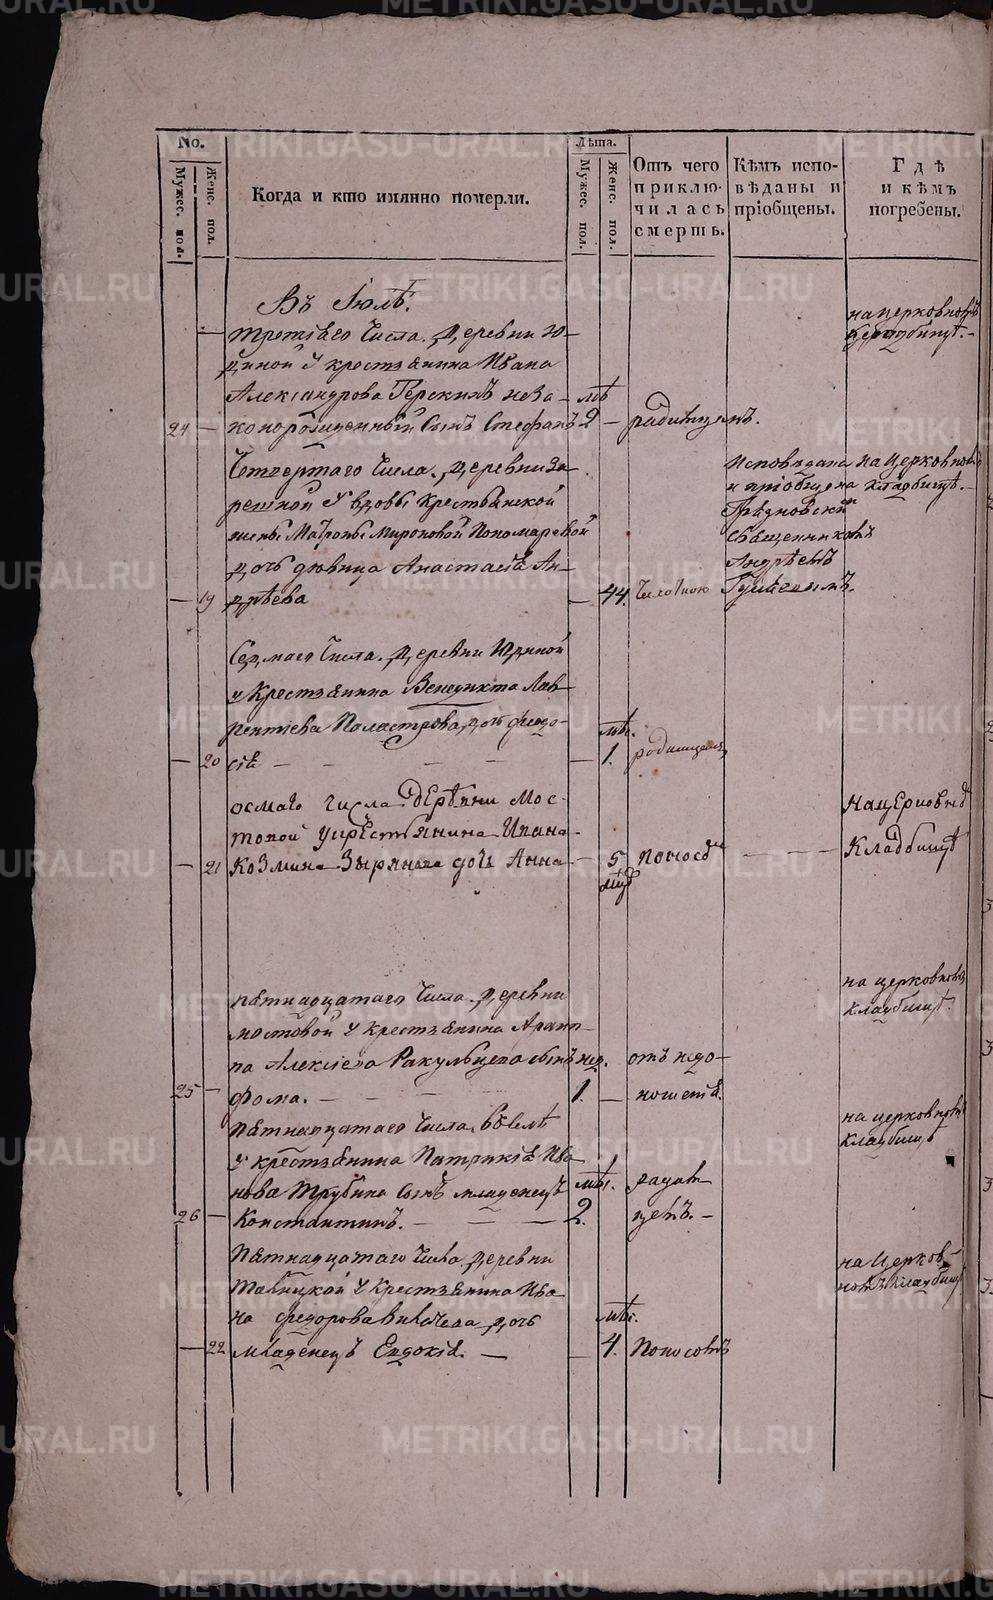 No.
Мужес. пол.
Женс. пол.
Когда и кто имянно померли.
Лѣта.
Мужес. пол.
Женс. пол.
Отъ чего приклю-
чилась смерть.
Кѣмъ испо-
вѣданы и
пріобщены.
Гдѣ
и кѣмъ
погребены.
Въ Іюлѣ.
третіяго числа. Деревни Ю-
диной у крестьянина Ивана
Александрова
24 — конорожденный сынъ Стефанъ 2 — родимцемъ.
на церковномъ
кладбищѣ.-
Четвертаго числа. Деревни За-
решной у вдовы крестьянской
жены Матроны Мироновой Пономаревой
дочь дѣвица Анастасія Ан-
— 19 дрѣева — 44.
Исповѣдана
и пріобщена
Грязновскимъ
священникомъ
Андрѣемъ
на церковномъ
кладбищѣ.-
Седмаго числа. Деревни Юдиной
у крестьянина Венедикта Лав-
рентіева дочь Феодо-
— 20 сія — — — — — мѣс. 1. родимцемъ
осмаго числа деревни Мос-
товой у крестьянина Ивана
— 21 Козмина Зырянова дочь Анна — 5 поносомъ — — —
на церковномъ
кладбищѣ
пятнадцатаго числа. Деревни
мостовой у крестьянина Архип-
па Алексіева Ракульцева сынъ нед. отъ недо-
25 — Фома. — — — — 1. — ношенія.
на церковномъ
кладбищѣ.
Пятнадцатаго числа. въ селѣ
у крестьянина Патрикія Ива-
нова Трубина сынъ младенецъ мѣс.
26 — Константинъ. — — — 2.
на церковномъ
кладбищѣ
Пятнадцатаго числа деревни
у крестьянина Ива-
на Федорова дочь мѣс.
— 22 младенецъ Евдокія. — — 4. Поносомъ
на церков-
номъ кладбищѣ
METRIKI.GASO-URAL.RU